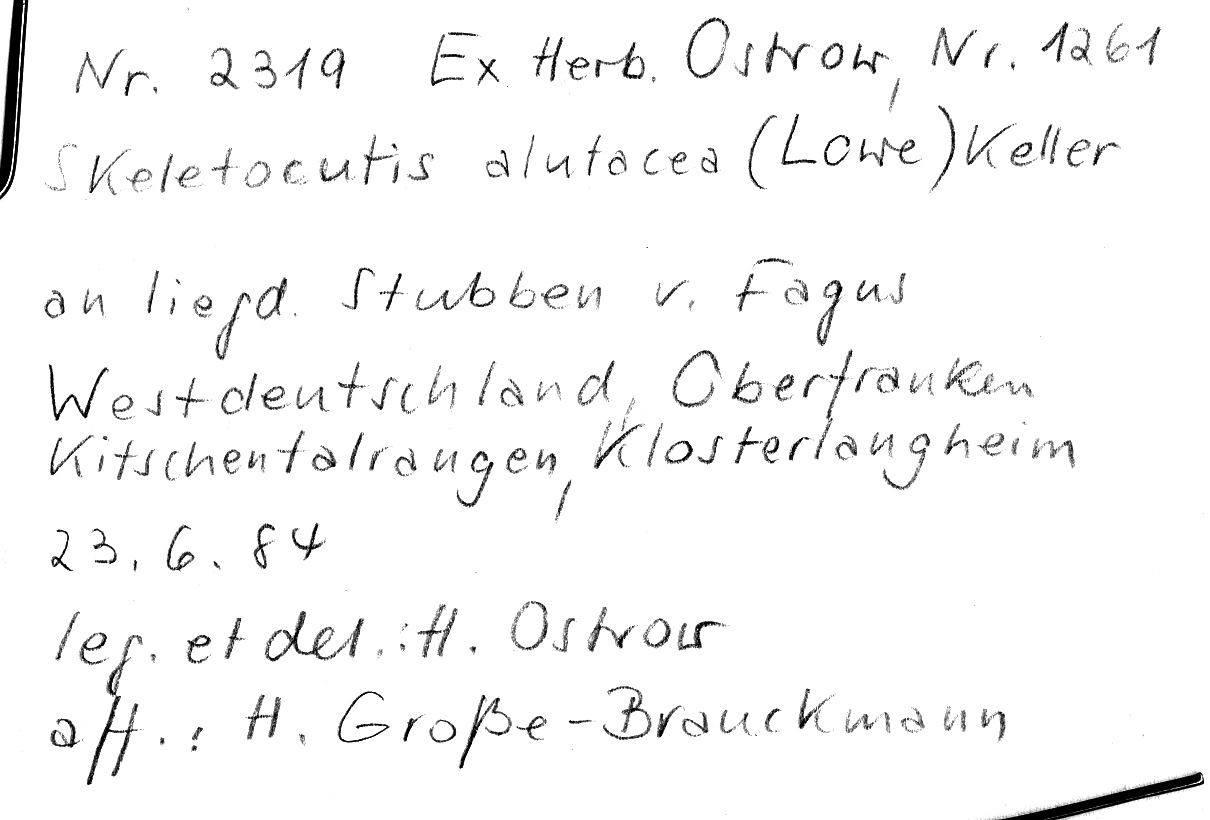 Nr. 2319 Ex Herb. Ostrow, Nr. 1261
Skeletocutis alutacea (Lowe) Keller
an liegd. Stubben v. Fagus
Westdeutschland, Oberfranken
Kitschentalrangen, Klosterlangheim
23. 6. 84
leg. et det.: H. Ostrow
aff.: H. Große-Brauckmann